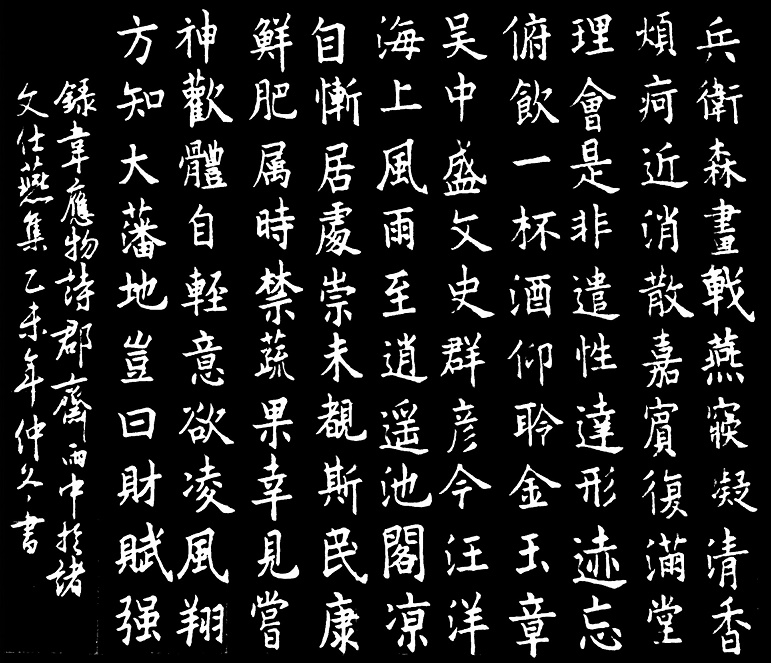 兵衛森畫戟燕寢凝清香
煩疴近消散嘉賓復滿堂
理會是非遣性達形迹忘
俯飲一杯酒仰聆金玉章
吴中盛文史群彦今汪洋
海上風雨至逍遥池閣凉
自慚居處崇未覩斯民康
鮮肥属時禁蔬果幸見嘗
神歡體自輕意欲凌風翔
方知大藩地豈曰財賦强
錄韋應物詩郡齋雨中於諸
文仕燕集乙未年仲冬書